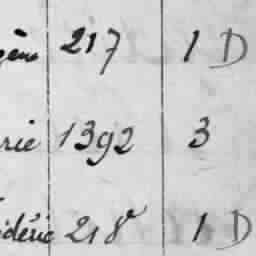 gène 217 1 D
rie 1392 3
édéric 218 1 D